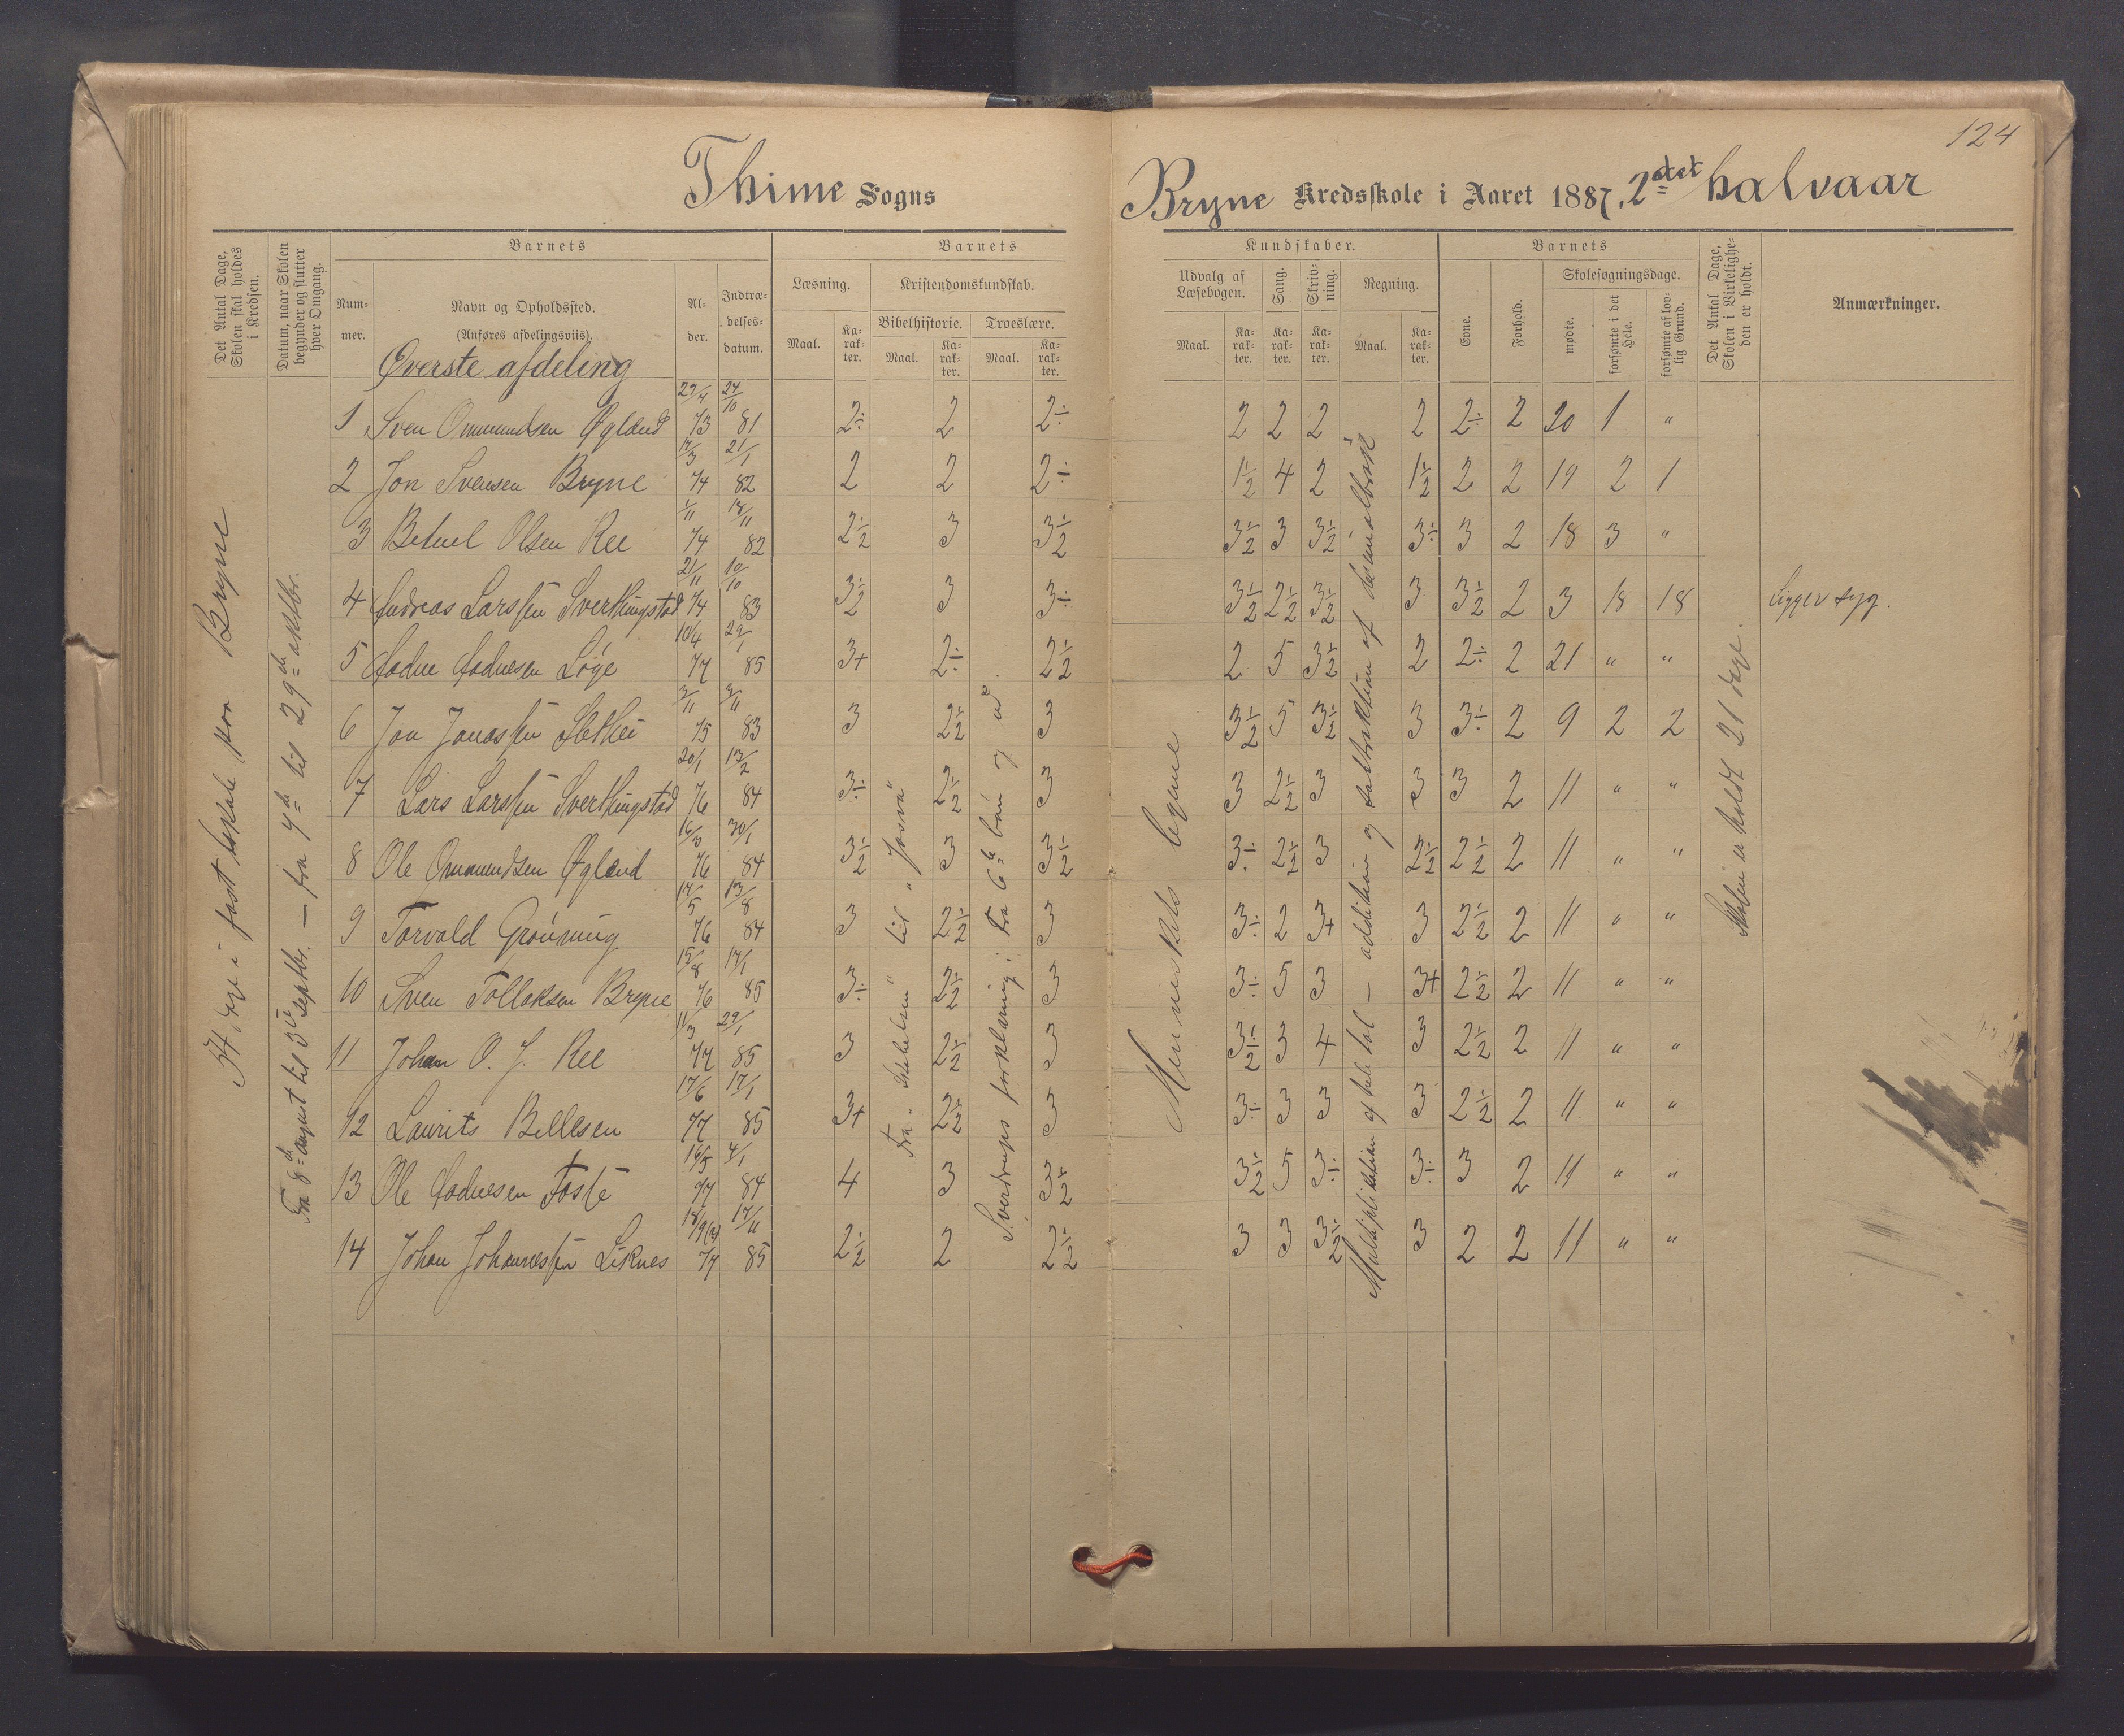 124
Thime Sogns
Bryne Kredsskole i Aaret 1887. 2det halvaar
Det Antal Dage, Skolen skal holdes i Kredsen.
Datum, naar Skolen begynder og slutter hver Omgang.
Barnets
Num-mer.
Navn og Opholdssted.
(Anføres afdelingsviis).
Al-der.
Indtræ-delses-datum.
Barnets
Læsning.
Kristendomskundskab.
Bibelhistorie.
Troeslære.
Maal.
Ka-rak-ter.
Maal.
Ka-rak-ter.
Maal.
Ka-rak-ter.
Kundskaber.
Udvalg af Læsebogen.
Sang.
Skriv-ning.
Regning.
Maal.
Ka-rak-ter.
Ka-rak-ter.
Ka-rak-ter.
Maal.
Ka-rak-ter.
Barnets
Evne.
Forhold.
Skolesøgningsdage.
mødte.
forsømte i det Hele.
forsømte af lov-lig Grund.
Det Antal Dage, Skolen i Virkelighe-den er holdt.
Anmærkninger.
Øverste afdeling
1 Sven Ommundsen Øgland 29/4 73 24/10 81 2÷ 2 2÷ 2 2 2 2 2÷ 2 20 1 "
2 Jon Svensen Bryne 74 21/1 82 2 2 2÷ 1½ 4 2 1½ 2 2 19 2 1
3 Betuel Olsen Ree 74 82 2½ 3 3½ 3½ 3 3½ 3÷ 3 2 18 3 "
4 Andreas Larssen Sverthingstad 21/11 74 10/10 83 3½ 3 3÷ 3½ 2½ 3½ 3 3½ 2 3 18 18 Ligger syg.
5 Aadne Aadnesen Løge 10/4 77 29/1 85 3+ 2÷ 2½ 2 5 3½ 2 2÷ 2 21 " "
6 Jon Jonassen 75 83 3 2½ 3 3½ 5 3½ 3 3÷ 2 9 2 2
7 Lars Larssen Sverthingstad 20/1 76 13/2 84 3÷ 2½ 3 3 2½ 3 3 3 2 11 " "
8 Ole Ommundsen Øgland 16/3 76 30/1 84 3½ 3 3½ 3÷ 2½ 3 2½ 2½ 2 11 " "
9 Torvald Grønning 76 13/8 84 3 2½ 3 3÷ 2 3+ 3 2½ 2 11 " "
10 Sven Tollaksen Bryne 76 17/1 85 3÷ 2½ 3 3÷ 5 3 3+ 2½ 2 11 " "
11 Johan O. J. Ree 11/3 77 29/1 85 3 2½ 3 3½ 3 4 3 2½ 2 11 " "
12 Laurits Bellesen 17/6 77 17/1 85 3+ 2½ 3 3÷ 3 3 3 2½ 2 11 " "
13 Ole Aadnesen Fosse 16/5 77 4/1 84 4 3 3½ 3½ 5 3÷ 3÷ 3 2 11 " "
14 Johan Johannessen Liknes 77 17/11 85 2½ 2 2½ 3 3 3½ 3 2 2 11 " "
54 dage i fast lokale paa Bryne
Fra 8de august til 3die septbr. — fra 4de til 29de oktbr.
Fra til "Josva"
Sverdrups forklaring: Fra 6te bøn og ud.
Menneskets legeme
Multiplikation af hele tal — addition og subtraktion af desimalbrøk
Skolen er holdt 21 dage.